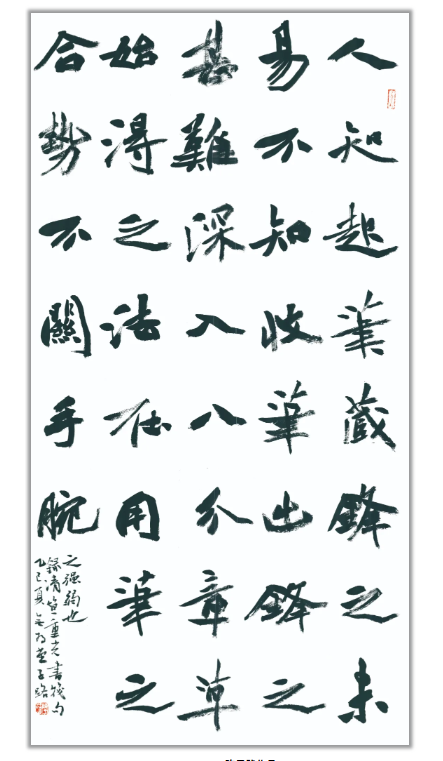 人知起筆藏鋒之未
易不知收筆出鋒之
甚難深入八分章草
始得之法在用筆之
合勢不關手腕
之强弱也
錄清笪重光書筏句
乙巳夏